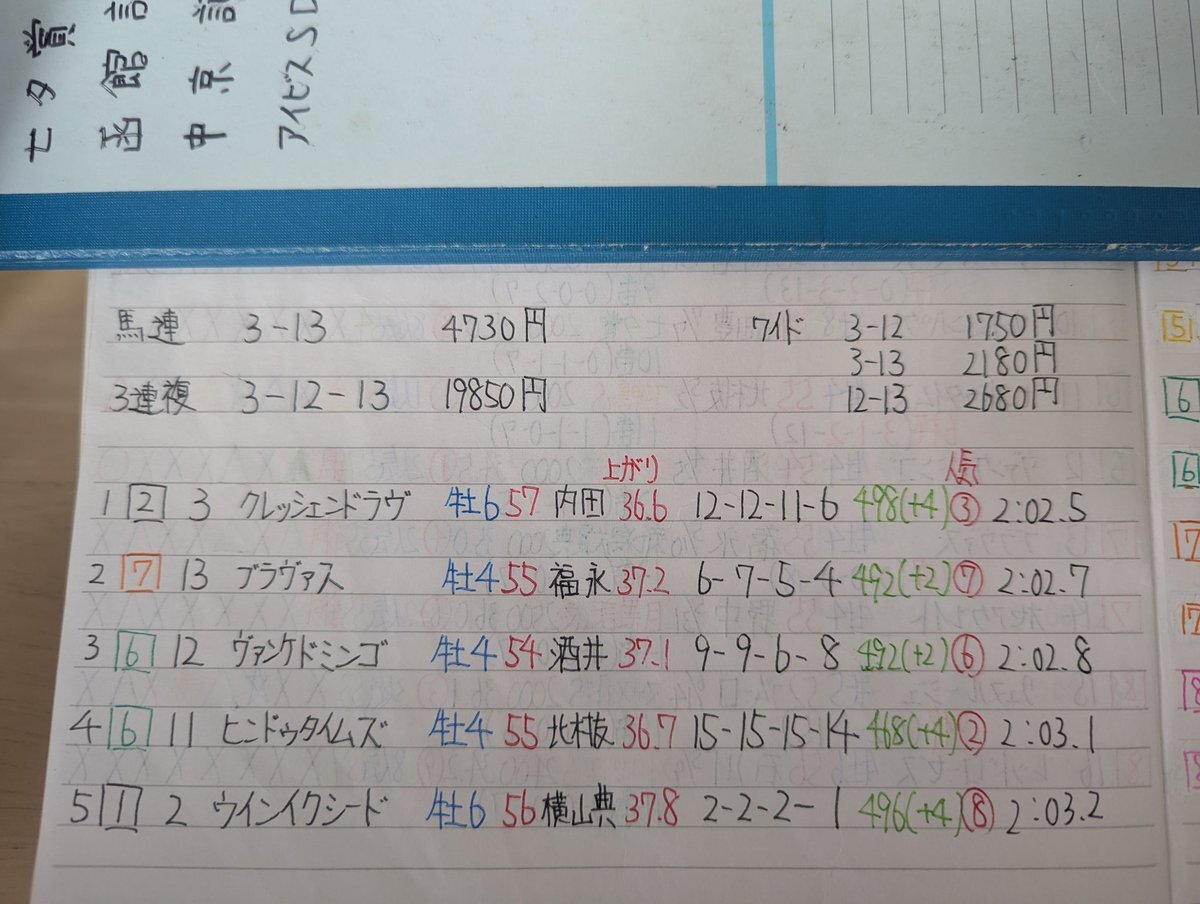 七夕賞
函館記
中京記
アイビスSD
馬連 3-13 4730円 ワイド 3-12 1750円
3-13 2180円
3連複 3-12-13 19850円 12-13 2680円
上がり 人気
1 2 3 クレッシェンドラヴ 牡6 57 内田 36.6 12-12-11-6 498(+4) ③ 2:02.5
2 7 13 ブラヴァス 牡4 55 福永 37.2 6-7-5-4 492(+2) ⑦ 2:02.7
3 6 12 ヴァンケドミンゴ 牡4 54 酒井 37.1 9-9-6-8 492(+2) ⑥ 2:02.8
4 6 11 ヒンドゥタイムズ 牡4 55 北村友 36.7 15-15-15-14 468(+4) ② 2:03.1
5 1 2 ウインイクシード 牡6 56 横山典 37.8 2-2-2-1 496(+4) ⑧ 2:03.2
5
6
6
7
7
8
8